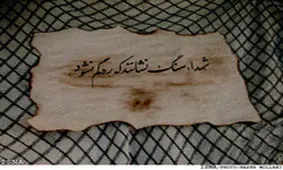 شهدا، سنگ نشانند که ره گم نشود.
ISNA
ISNA/PHOTO: